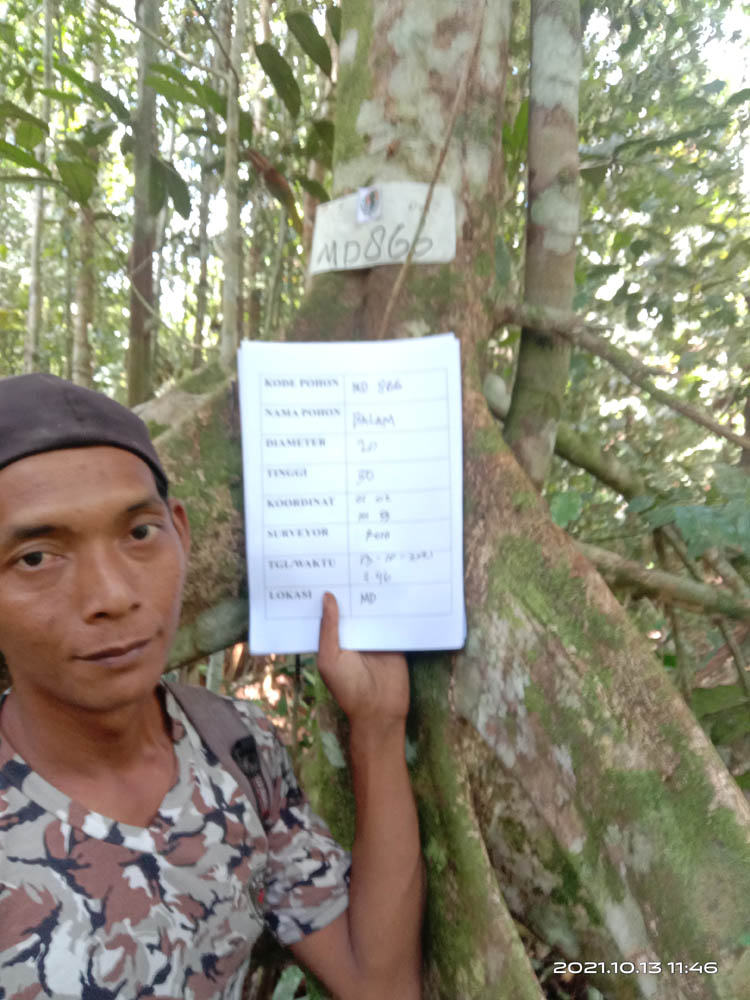 MD866
KODE POHON MD 866
NAMA POHON BALAM
DIAMETER 20
TINGGI 30
KOORDINAT
SURVEYOR
TGL/WAKTU 13-10-2021
LOKASI MD
2021.10.13 11:46